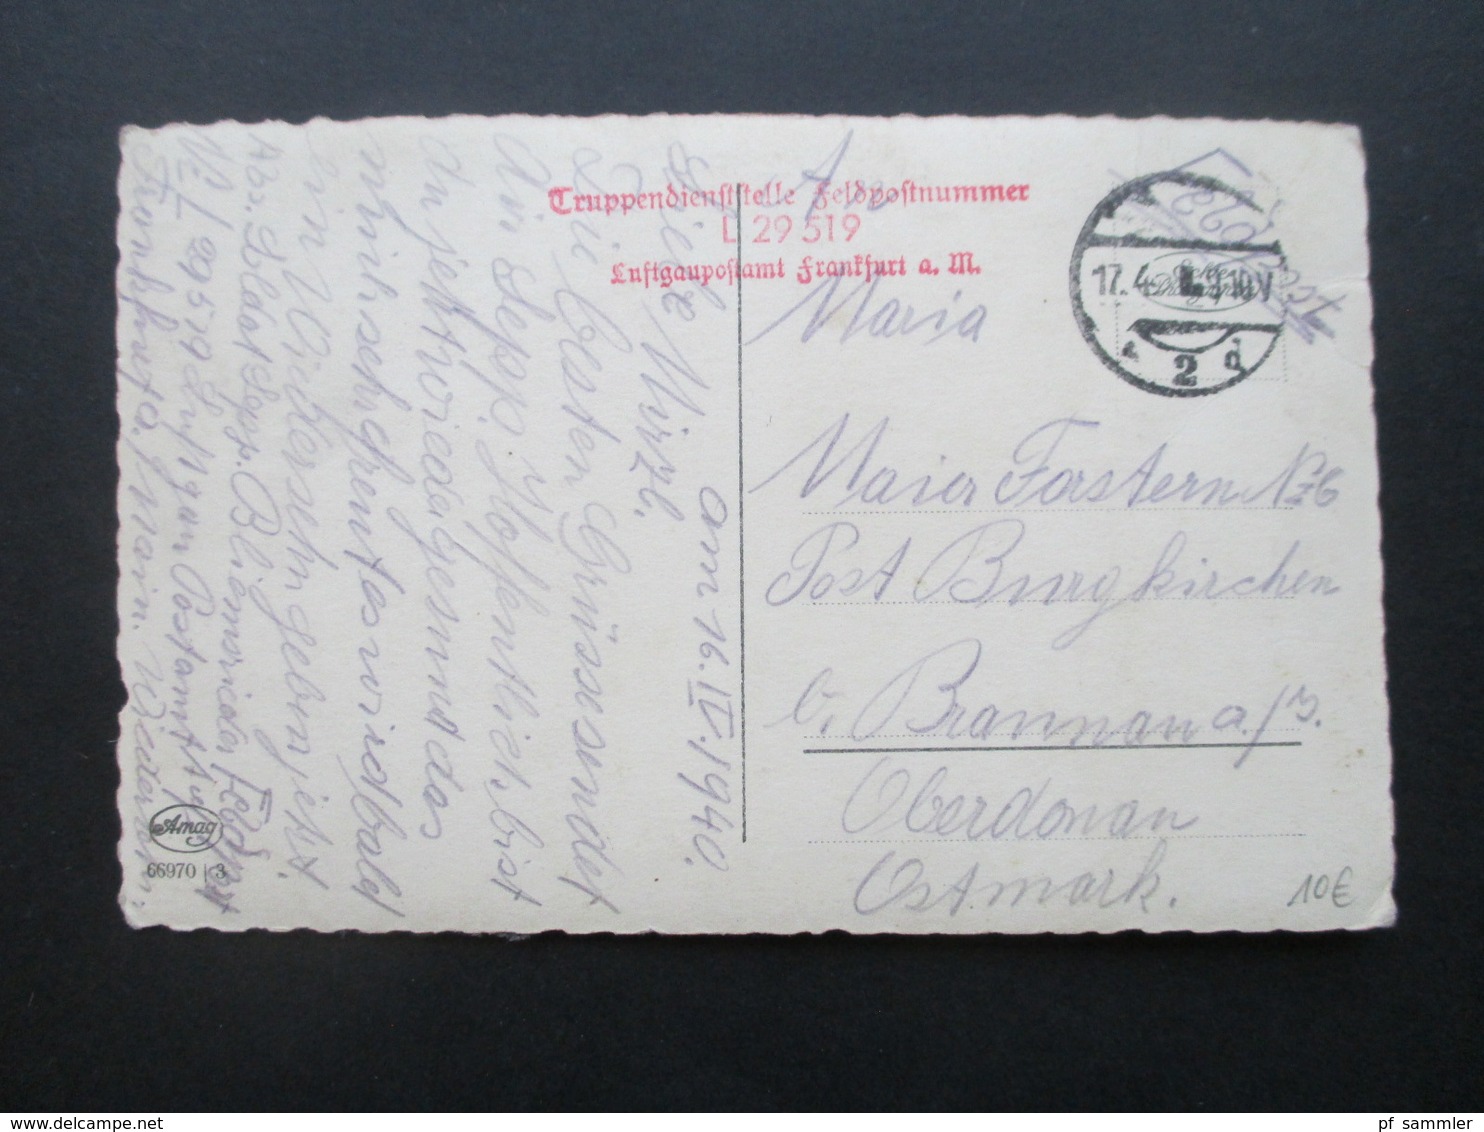 Truppendienststelle Feldpostnummer
L 29 519
Luftgaupostamt Frankfurt a. M.
Feldpost
17.4. 10V
2 d
An
Maria
Maier Forstern No 6
Post Burgkirchen
b. Braunau a/
Oberdonau
Ostmark.
am 16.IV.1940.
Liebe Mirzl,
Die besten Grüsse sendet
Dir Sepp. Hoffentlich bist
du jetzt wieder gesund das
mich sehr freut es wird bald
ein Widersehn geben jetzt.
Abs. Soldat Sepp
L 29519 Luftgau Postamt
Frankfurt a, Main.
Amag
66970 | 3
10€
pf_sammler